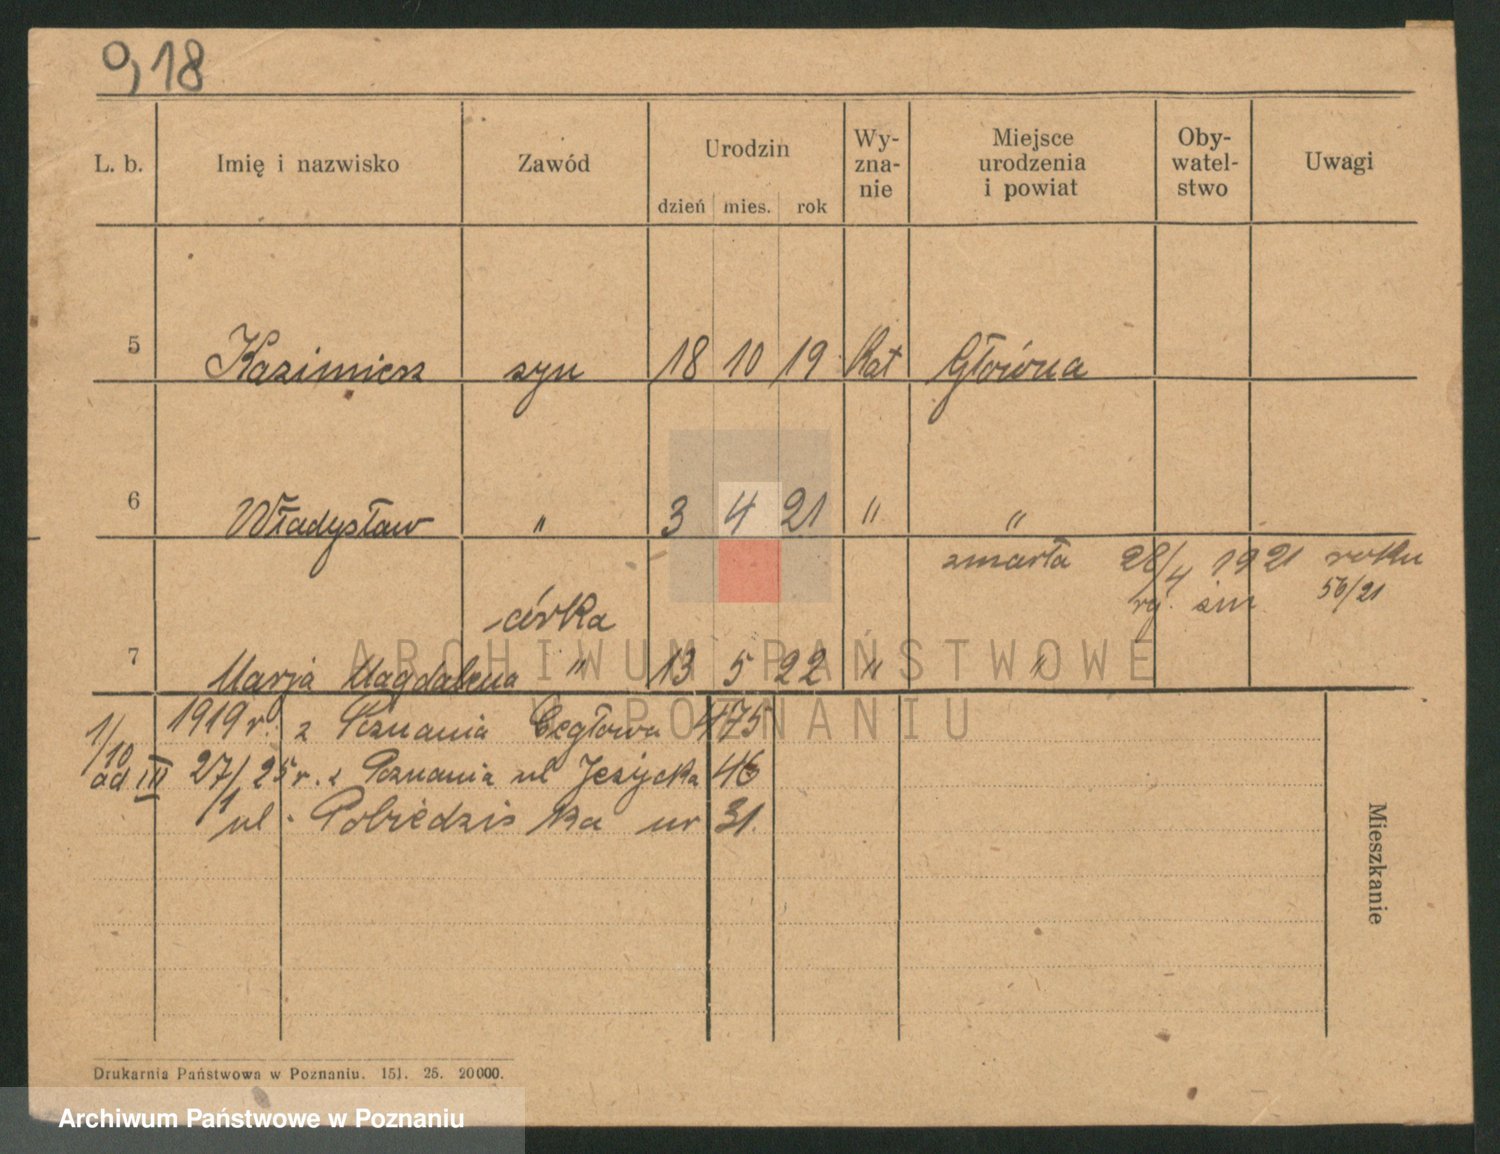 9,18
L. b. Imię i nazwisko Zawód Urodzin dzień mies. rok Wy-zna-nie Miejsce urodzenia i powiat Oby-watel-stwo Uwagi
5 Kazimierz syn 18 10 19 Kat Główna
6 Władysław " 3 4 21 " "
zmarła 28/4 1921 roku
córka rg. zm. 56/21
7 Marja Magdalena " 13 5 22 " "
1/10 1919 r. z Poznania Cegłowa 475
od III 27/1 25 r. z Poznania ul Jeżycka 46
ul. Pobiedziska nr 31.
Mieszkanie
Drukarnia Państwowa w Poznaniu. 151. 25. 20000.
ARCHIWUM PAŃSTWOWE
W POZNANIU
Archiwum Państwowe w Poznaniu